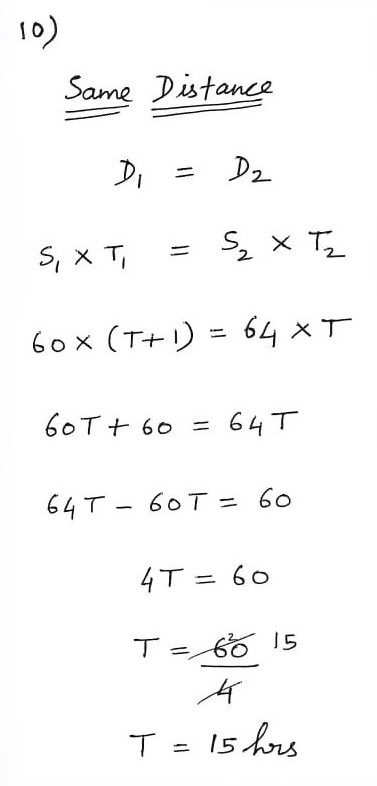 10)
Same Distance
D₁ = D₂
S₁ × T₁ = S₂ × T₂
60 × (T+1) = 64 × T
60T + 60 = 64T
64T - 60T = 60
4T = 60
T = 60 15
4
T = 15 hrs